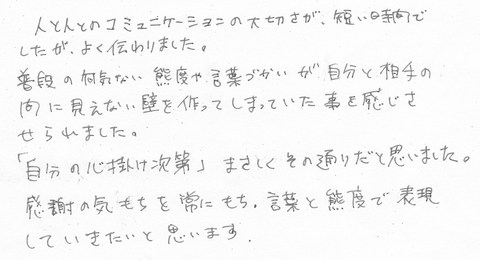 人と人とのコミュニケーションの大切さが、短い時間で
したが、よく伝わりました。
普段の何気ない態度や言葉づかいが自分と相手の
間に見えない壁を作ってしまっていた事を感じさ
せられました。
「自分の心掛け次第」まさしくその通りだと思いました。
感謝の気もちを常にもち、言葉と態度で表現
していきたいと思います.